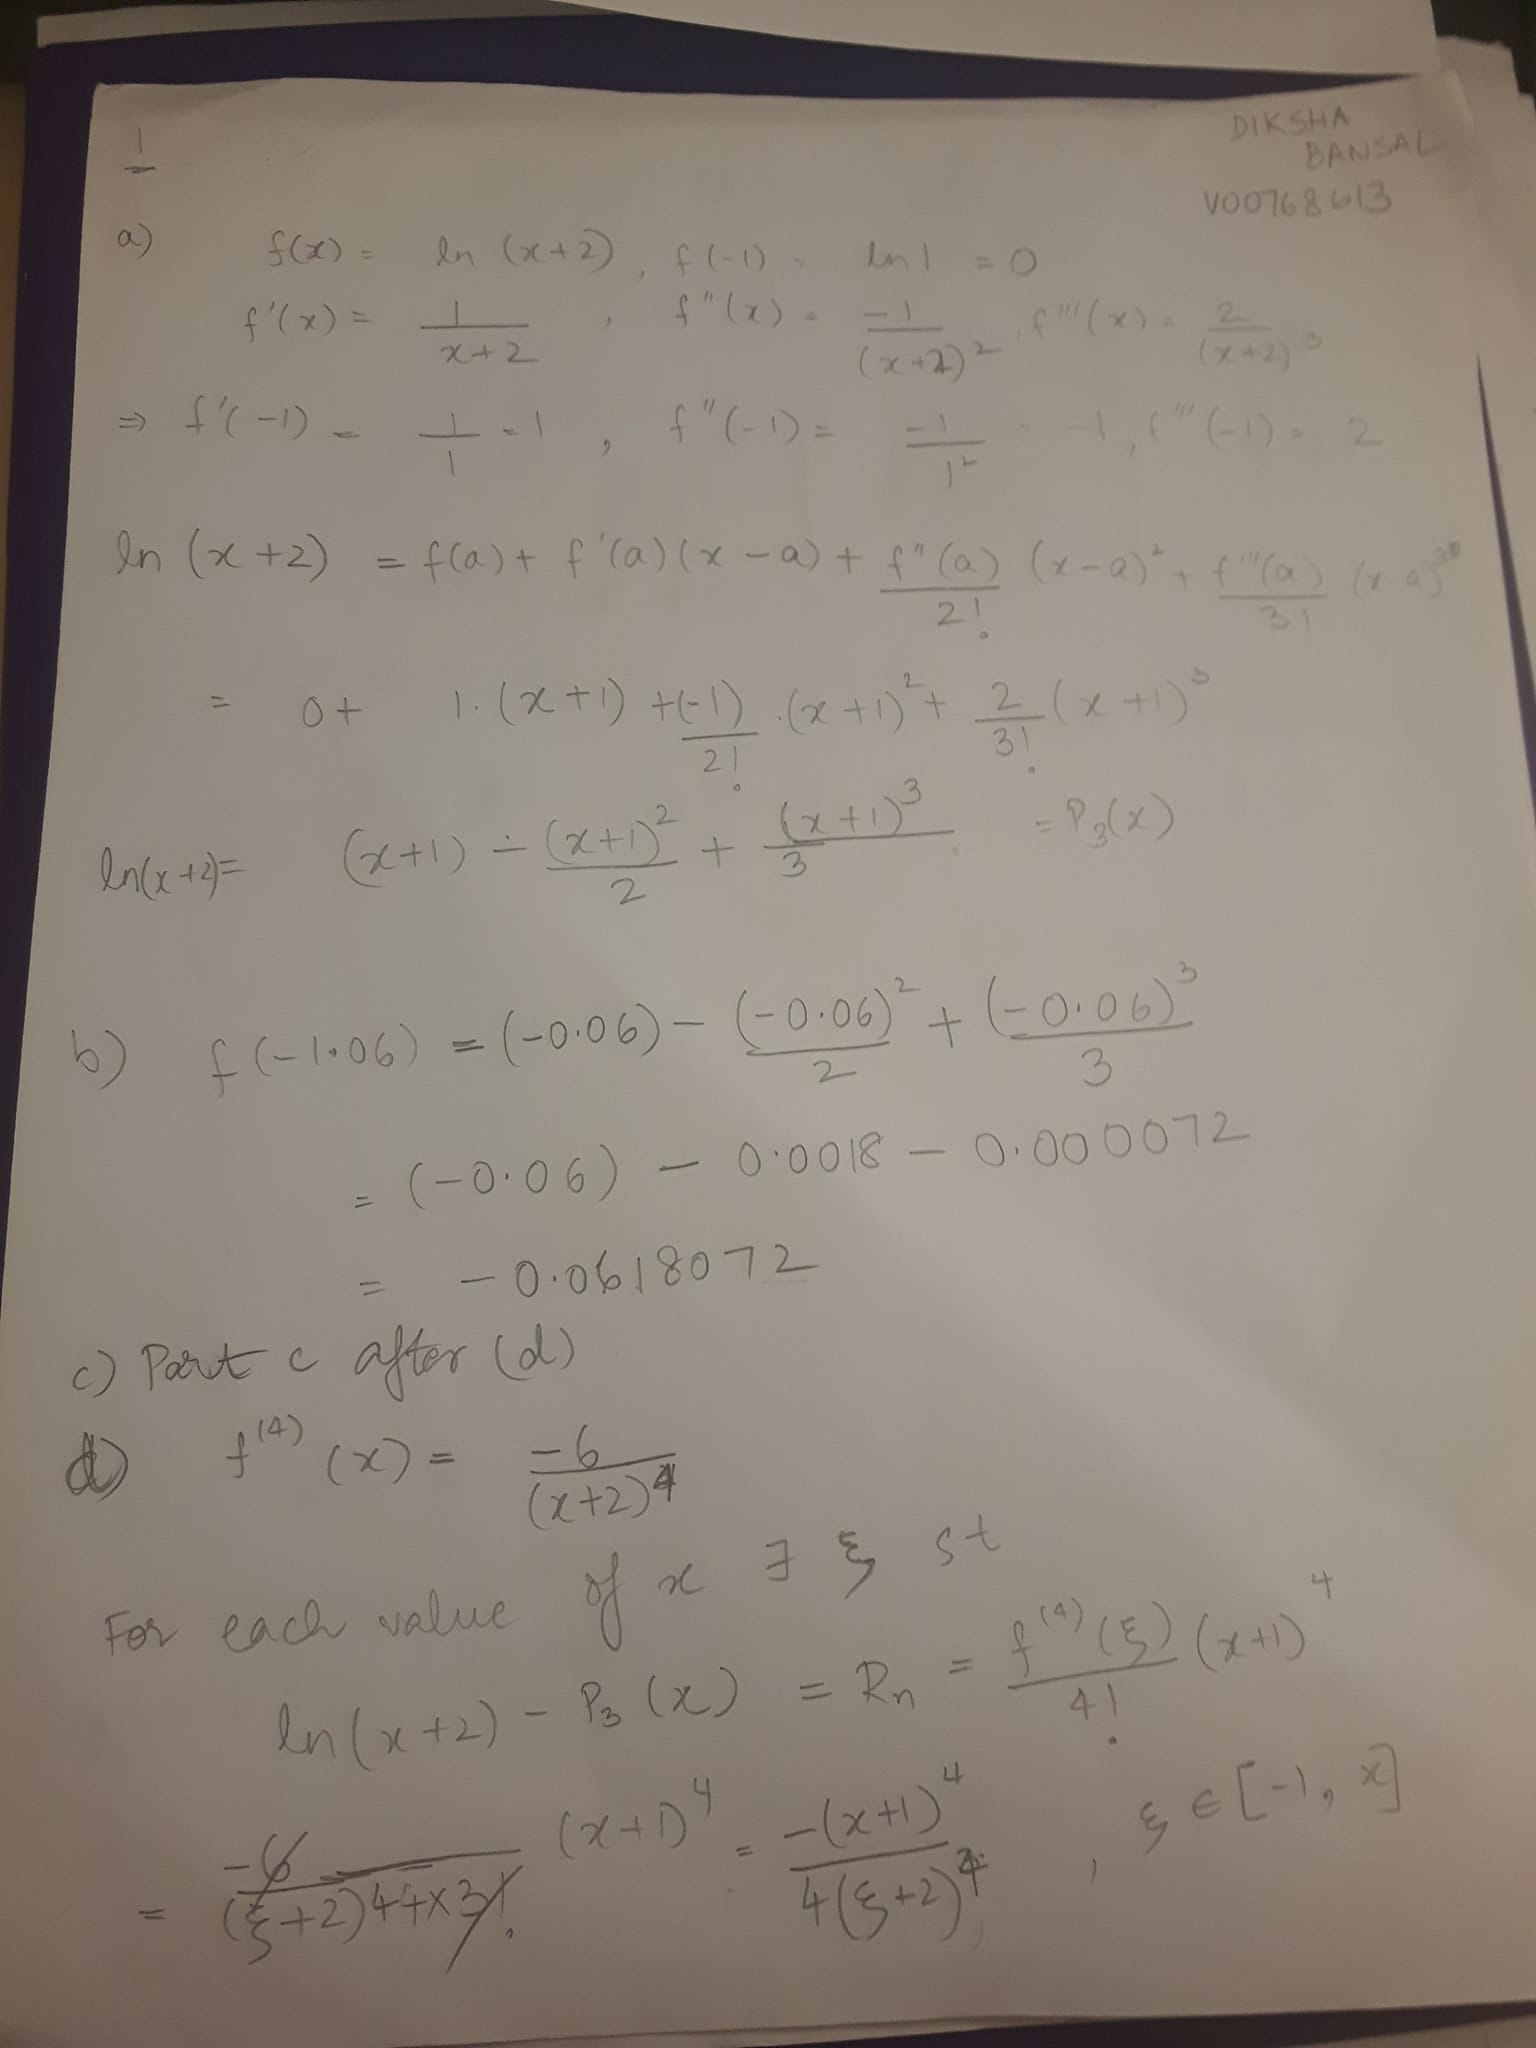 1
DIKSHA
BANSAL
V00768613
a) f(x) = ln (x+2), f(-1) = ln 1 = 0
f'(x) = 1/(x+2) , f''(x) = -1/(x+2)², f'''(x) = 2/(x+2)³
⇒ f'(-1) = 1/1 = 1 , f''(-1) = -1/1² = -1, f'''(-1) = 2
ln (x+2) = f(a) + f'(a)(x-a) + f''(a)/2! (x-a)² + f'''(a)/3! (x-a)³
= 0 + 1.(x+1) + (-1)/2! .(x+1)² + 2/3! (x+1)³
ln(x+2) = (x+1) - (x+1)²/2 + (x+1)³/3 = P₃(x)
b) f(-1.06) = (-0.06) - (-0.06)²/2 + (-0.06)³/3
= (-0.06) - 0.0018 - 0.000072
= -0.0618072
c) Part c after (d)
d) f⁽⁴⁾(x) = -6/(x+2)⁴
For each value of x ∃ ξ st
ln(x+2) - P₃(x) = Rn = f⁽⁴⁾(ξ)/4! (x+1)⁴
= -6/((ξ+2)⁴ 4×3!) (x+1)⁴ = -(x+1)⁴/4(ξ+2)⁴ , ξ ∈ [-1, x]